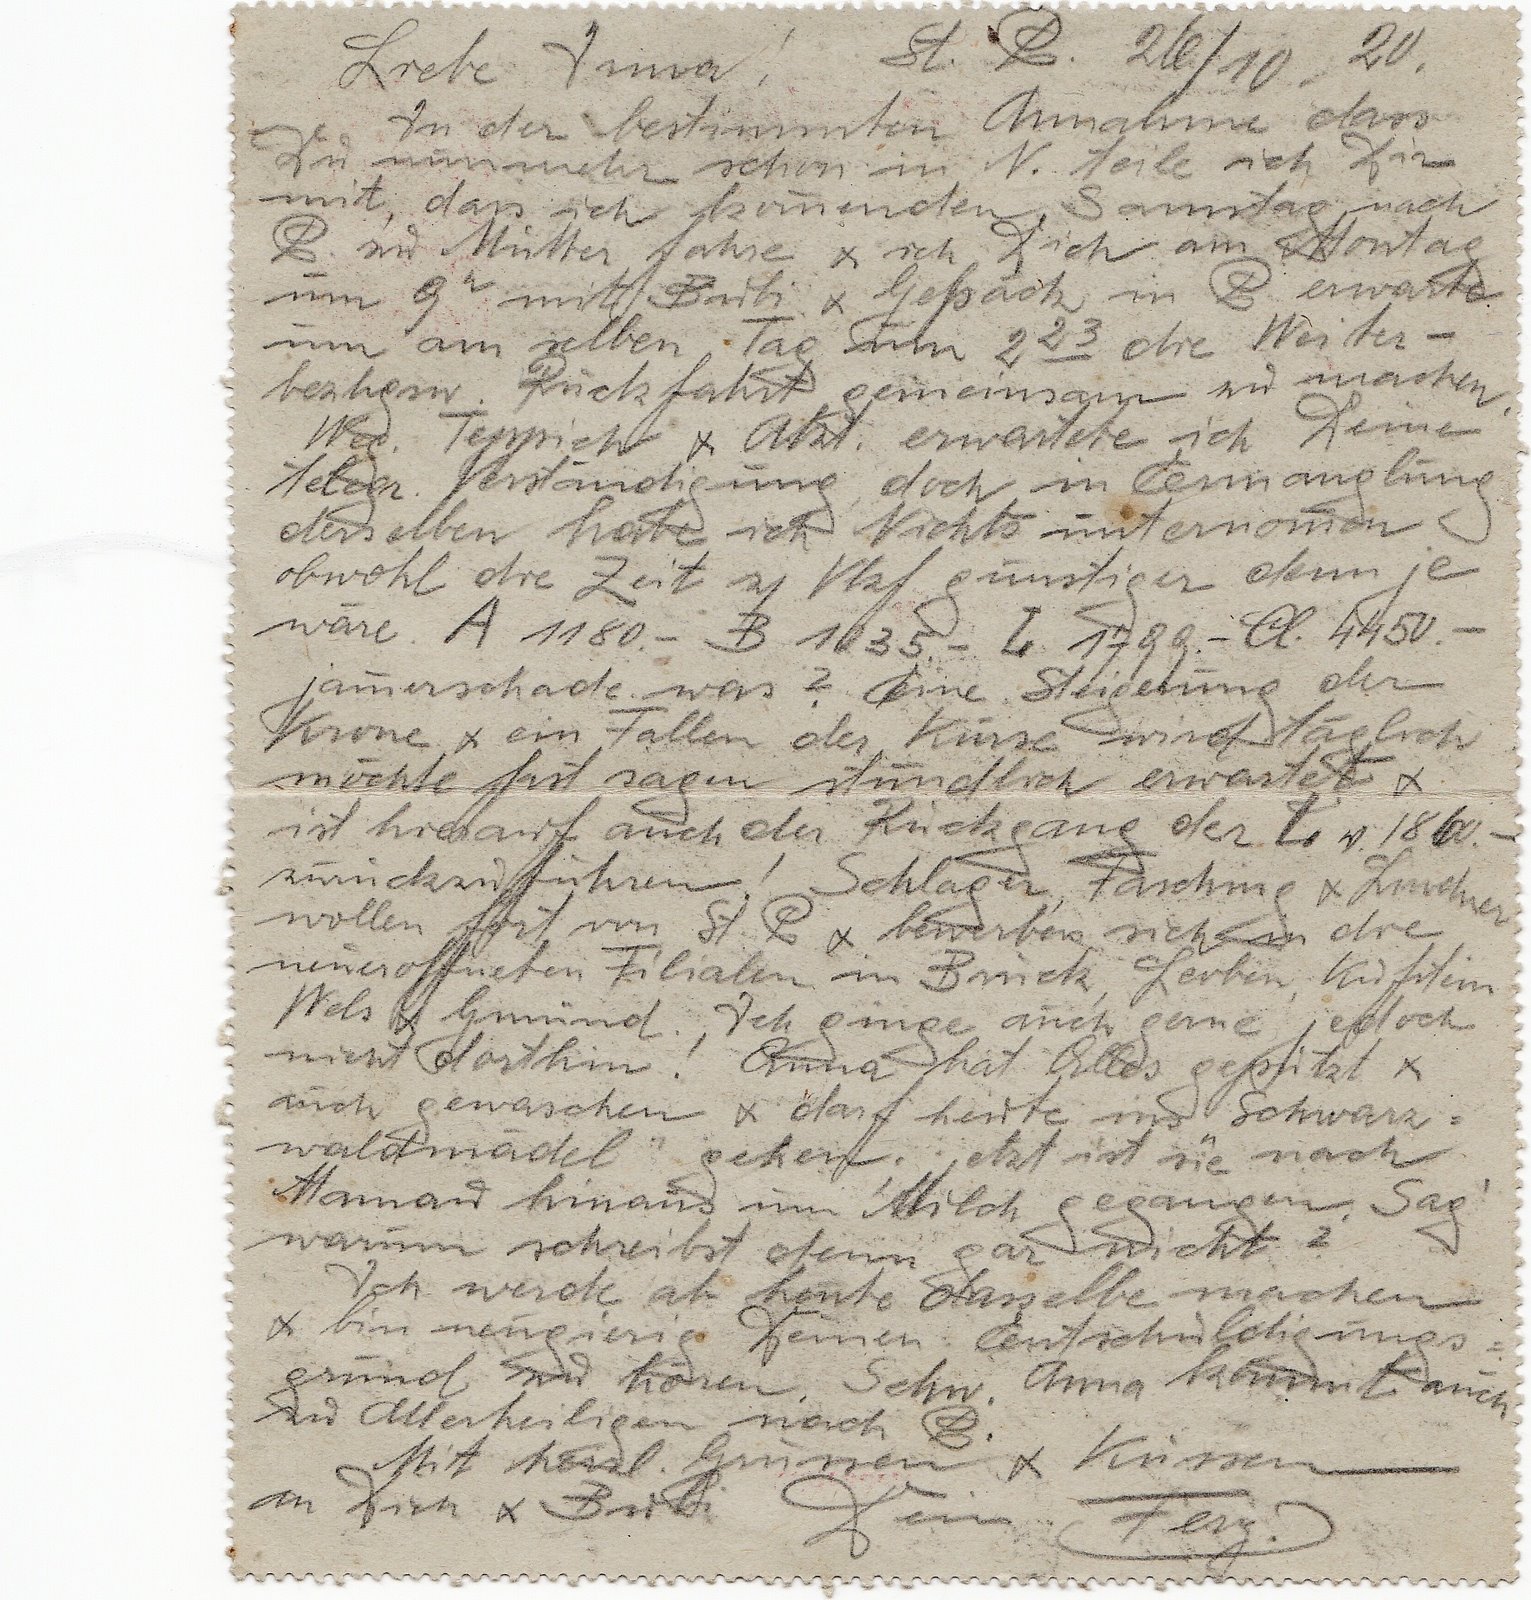 Liebe Irma! St. P. 26/10. 20.
In der bestimmten Annahme dass
Du nunmehr schon in N. teile ich Dir
mit, dass ich kom̄enden Samstag nach
P. zu Mutter fahre & ich Dich am Montag
um 9h mit Bubi & Gepäck in P. erwarte
um am selben Tag um 2 23 die Weiter-
bezhgsw. Rückfahrt gemeinsam zu machen.
Weg. Teppich & erwartete ich Deine
telegr. Verständigung doch in Ermanglung
derselben habe ich Nichts unternom̄en
obwohl die Zeit z/ Vkf günstiger denn je
wäre. A 1180.- B 1035.- L 1799.- Cl. 4450.-
jam̄erschade was? Eine Steigerung der
Krone & ein Fallen der Kurse wird täglich
möchte fast sagen stündlich erwartet &
ist hierauf auch der Rückgang der L v. 1860.-
zurückzuführen! Schlager, Fasching &
wollen fort von St. P. & bewerben sich in die
neueröffneten Filialen in Bruck, Leoben, Kufstein
Wels & Gmünd. Ich ginge auch gerne jedoch
nicht dorthin! Anna hat Alles geputzt &
auch gewaschen & darf heute ins Schwarz=
waldmädel" gehen. jetzt ist sie nach
hinaus um Milch gegangen. Sag'
warum schreibst denn gar nicht?
Ich werde ab heute dasselbe machen
& bin neugierig Deinen Entschuldigungs=
grund zu hören. Schw. Anna kommt auch
zu Allerheiligen nach P.
Mit herzl. Grüssen & Küssen
an Dich & Bubi Dein Ferj.